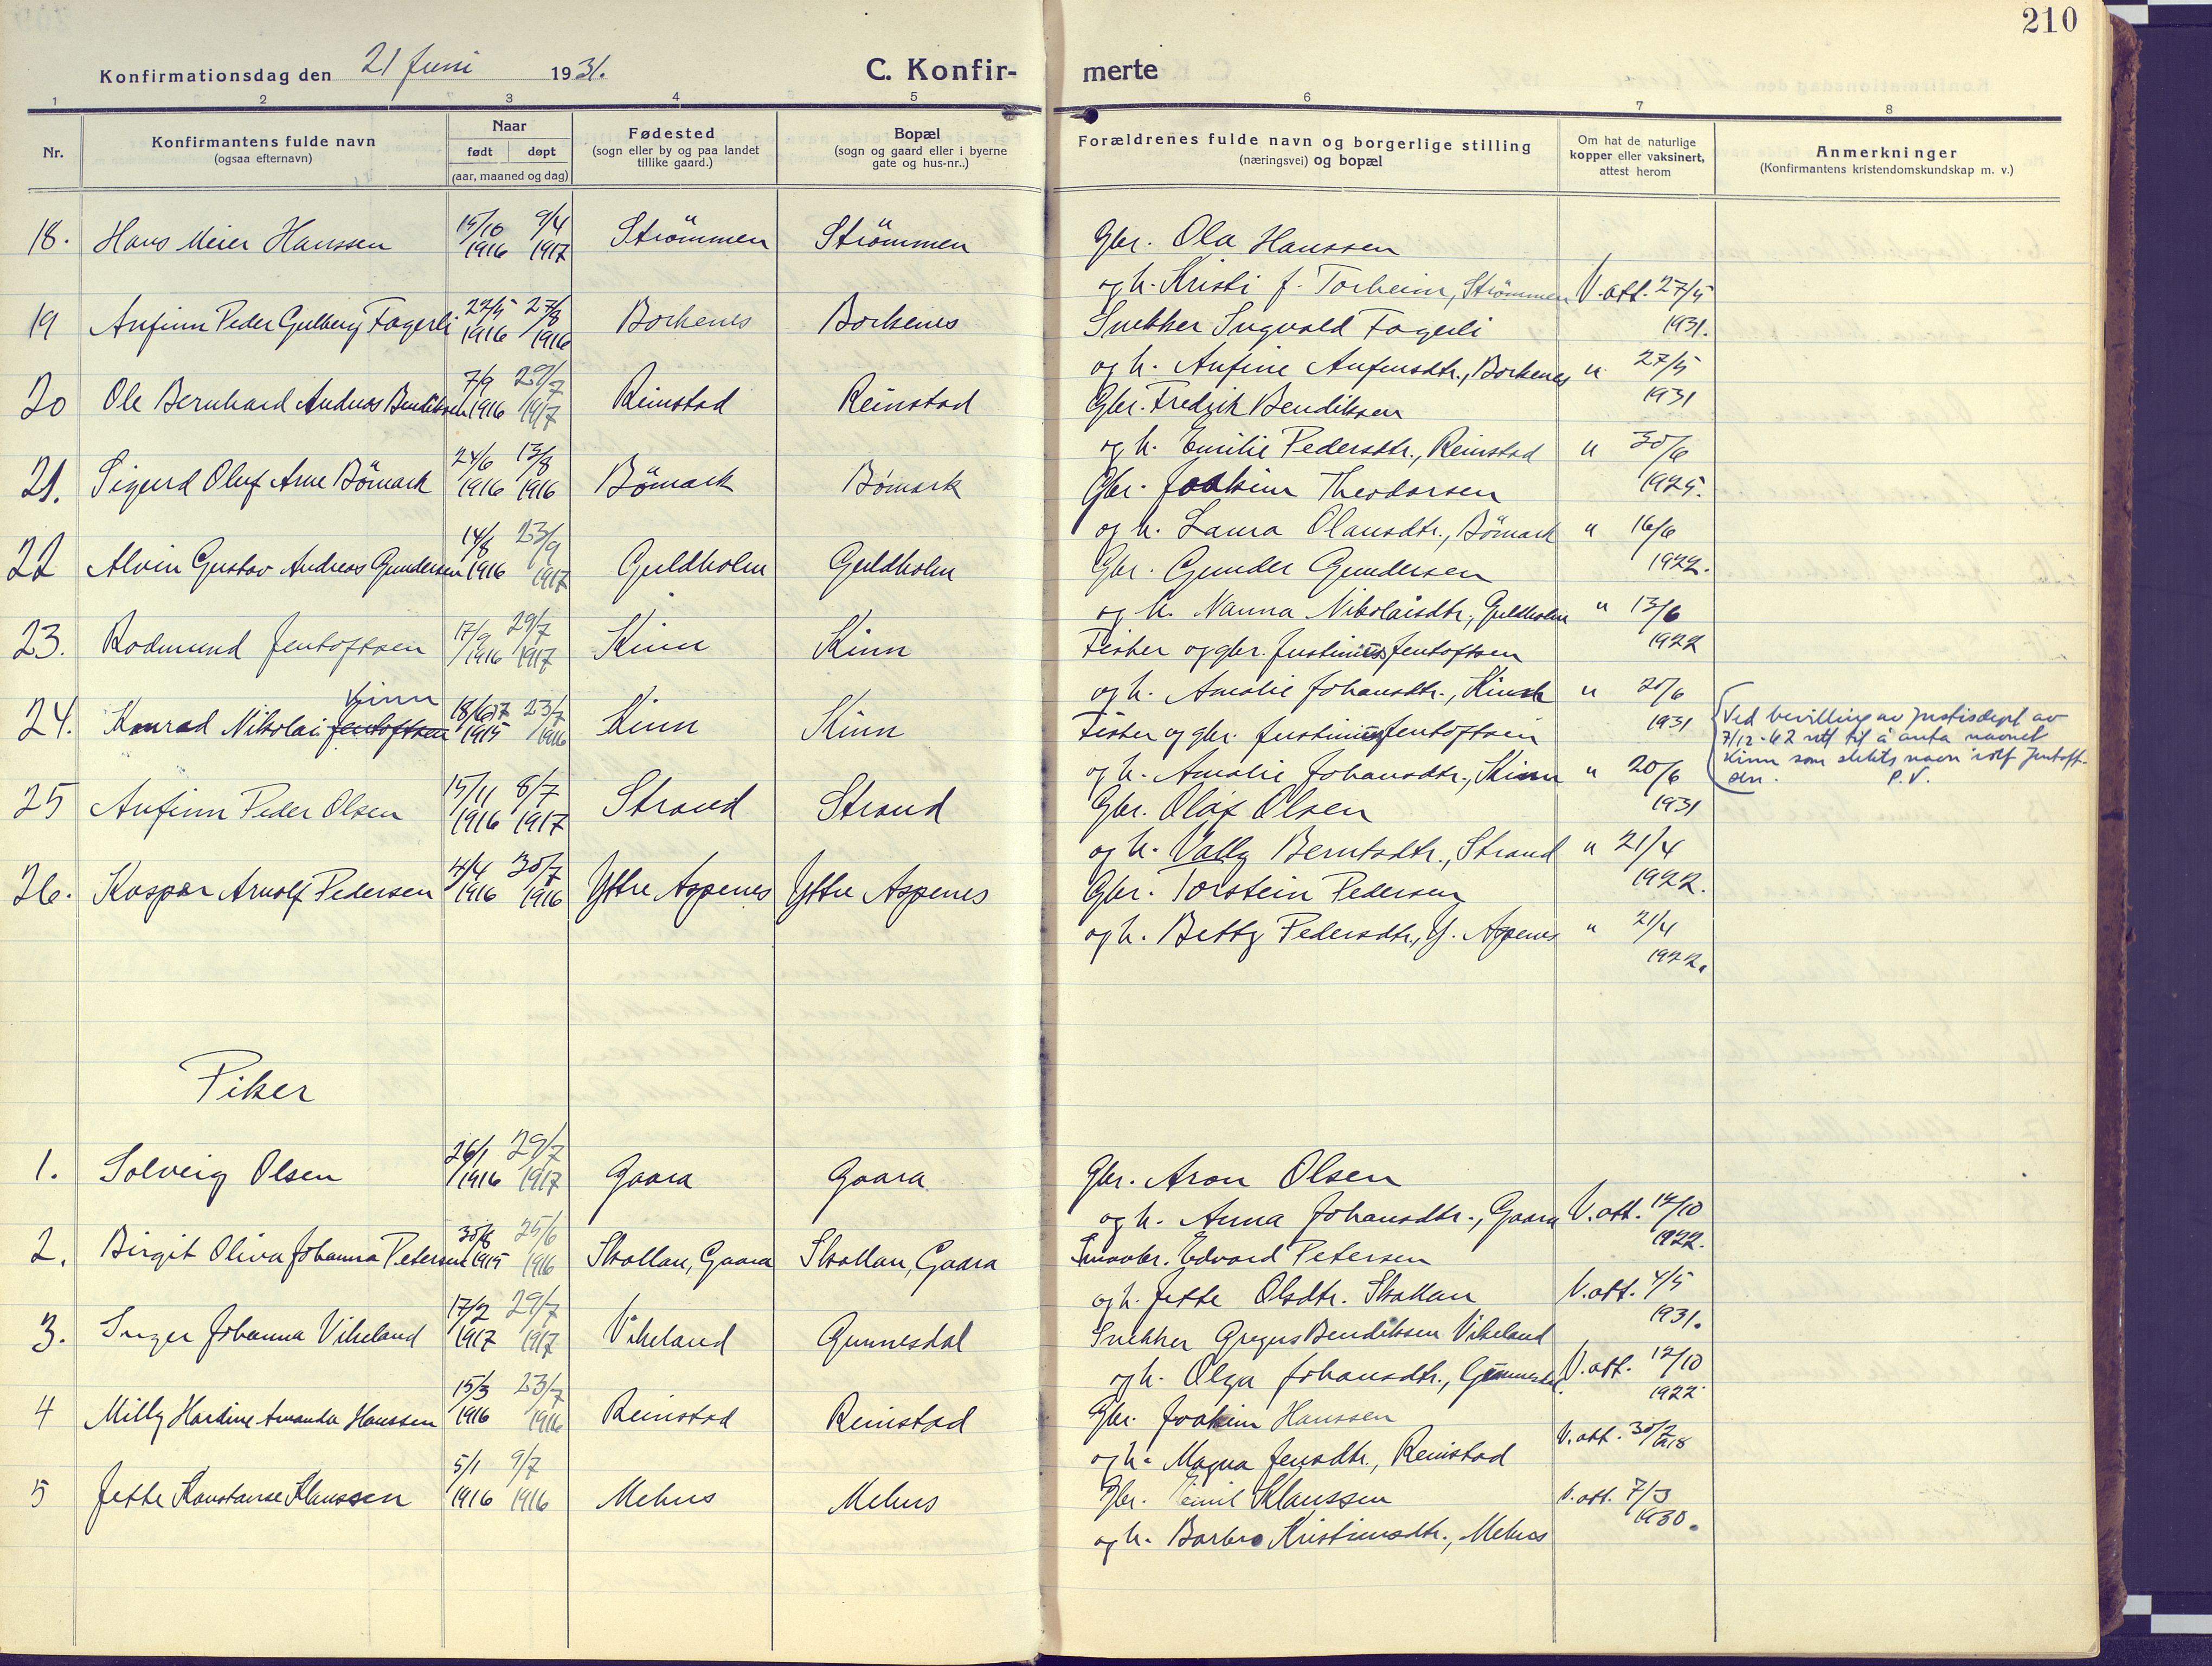 210
Konfirmationsdag den 21 Juni 1931.
C. Konfir- merte
1 2 3 4 5 6 7 8
Nr.
Konfirmantens fulde navn
(ogsaa efternavn)
Naar
født døpt
(aar, maaned og dag)
Fødested
(sogn eller by og paa landet
tillike gaard.)
Bopæl
(sogn og gaard eller i byerne
gate og hus-nr..)
Forældrenes fulde navn og borgerlige stilling
(næringsvei) og bopæl
Om hat de naturlige
kopper eller vaksinert,
attest herom
Anmerkninger
(Konfirmantens kristendomskundskap m. v.)
18. Hans Meier Hanssen 15/10 1916 9/4 1917 Strömmen Strömmen Gbr. Ola Hanssen
og h. Kristi f. Torheim, Strömmen V. att. 27/5 1931.
19 Anfinn Peder Gulberg Fagerli 22/5 1916 27/8 1916 Borkenes Borkenes Snekker Ingvald Fagerli
og h. Anfine Anfinsdtr., Borkenes " 27/5 1931
20 Ole Bernhard Andreas Bendiksen 7/9 1916 29/7 1917 Reinstad Reinstad Gbr. Fredrik Bendiksen
og h. Emilie Pedersdtr., Reinstad " 30/6 1925.
21. Sigurd Oluf Arne Bömark 24/6 1916 13/8 1916 Bömark Bömark Gbr. Joakim Theodorsen
og h. Laura Olausdtr., Bömark " 16/6 1922.
22 Alvin Gustav Andreas Gundersen 14/8 1916 23/9 1917 Guldholm Guldholm Gbr. Gunder Gundersen
og h. Nanna Nikolaisdtr., Guldholm " 13/6 1922
23. Rodmund Jentoftsen 17/9 1916 29/7 1917 Kinn Kinn Fisher og gbr. Justinius Jentoftsen
og h. Amalie Johansdtr., Kinn " 20/6 1931
24. Konrad Nikolai Jentoftsen Kinn 18/6 1915 23/7 1916 Kinn Kinn Fisher og gbr. Justinius Jentoftsen
og h. Amalie Johansdtr., Kinn " 20/6 1931
Ved bevilling av Justisdept av
7/12-62 rett til å anta navnet
Kinn som slekts navn istf Jentoft-
sen. P.V.
25 Anfinn Peder Olsen 15/11 1916 8/7 1917 Strand Strand Gbr. Olaf Olsen
og h. Vally Berntsdtr., Strand " 21/4 1922.
26. Kaspar Arnolf Pedersen 4/4 1916 30/7 1916 Yttre Aspenes Yttre Aspenes Gbr. Torstein Pedersen
og h. Betty Pedersdtr., Y. Aspenes " 21/4 1922.
Piker
1. Solveig Olsen 26/1 1916 29/7 1917 Gaara Gaara Gbr. Aron Olsen
og h. Anna Johansdtr., Gaara V. att. 12/10 1922.
2. Birgit Oliva Johanna Petersen 30/8 1915 25/6 1916 Skallan, Gaara Skallan, Gaara Smaabr. Edvard Petersen
og h. Jette Olsdtr. Skallan V. att. 4/5 1931.
3. Inger Johanna Vikeland 17/2 1917 29/7 1917 Vikeland Gunnesdal Snekker Gregus Bendiksen Vikeland
og h. Olga Johansdtr., Gunnesdal V. att. 12/10 1922
4 Milly Hardine Amanda Hanssen 15/3 1916 23/7 1916 Reinstad Reinstad Gbr. Joakim Hanssen
og h. Magna Jensdtr., Reinstad V. att. 30/7 1918
5 Jette Konstanse Klaussen 5/1 1916 9/7 1916 Mehus Mehus Gbr. Emil Klaussen
og h. Barbro Kristiansdtr., Mehus V. att. 7/3 1930.